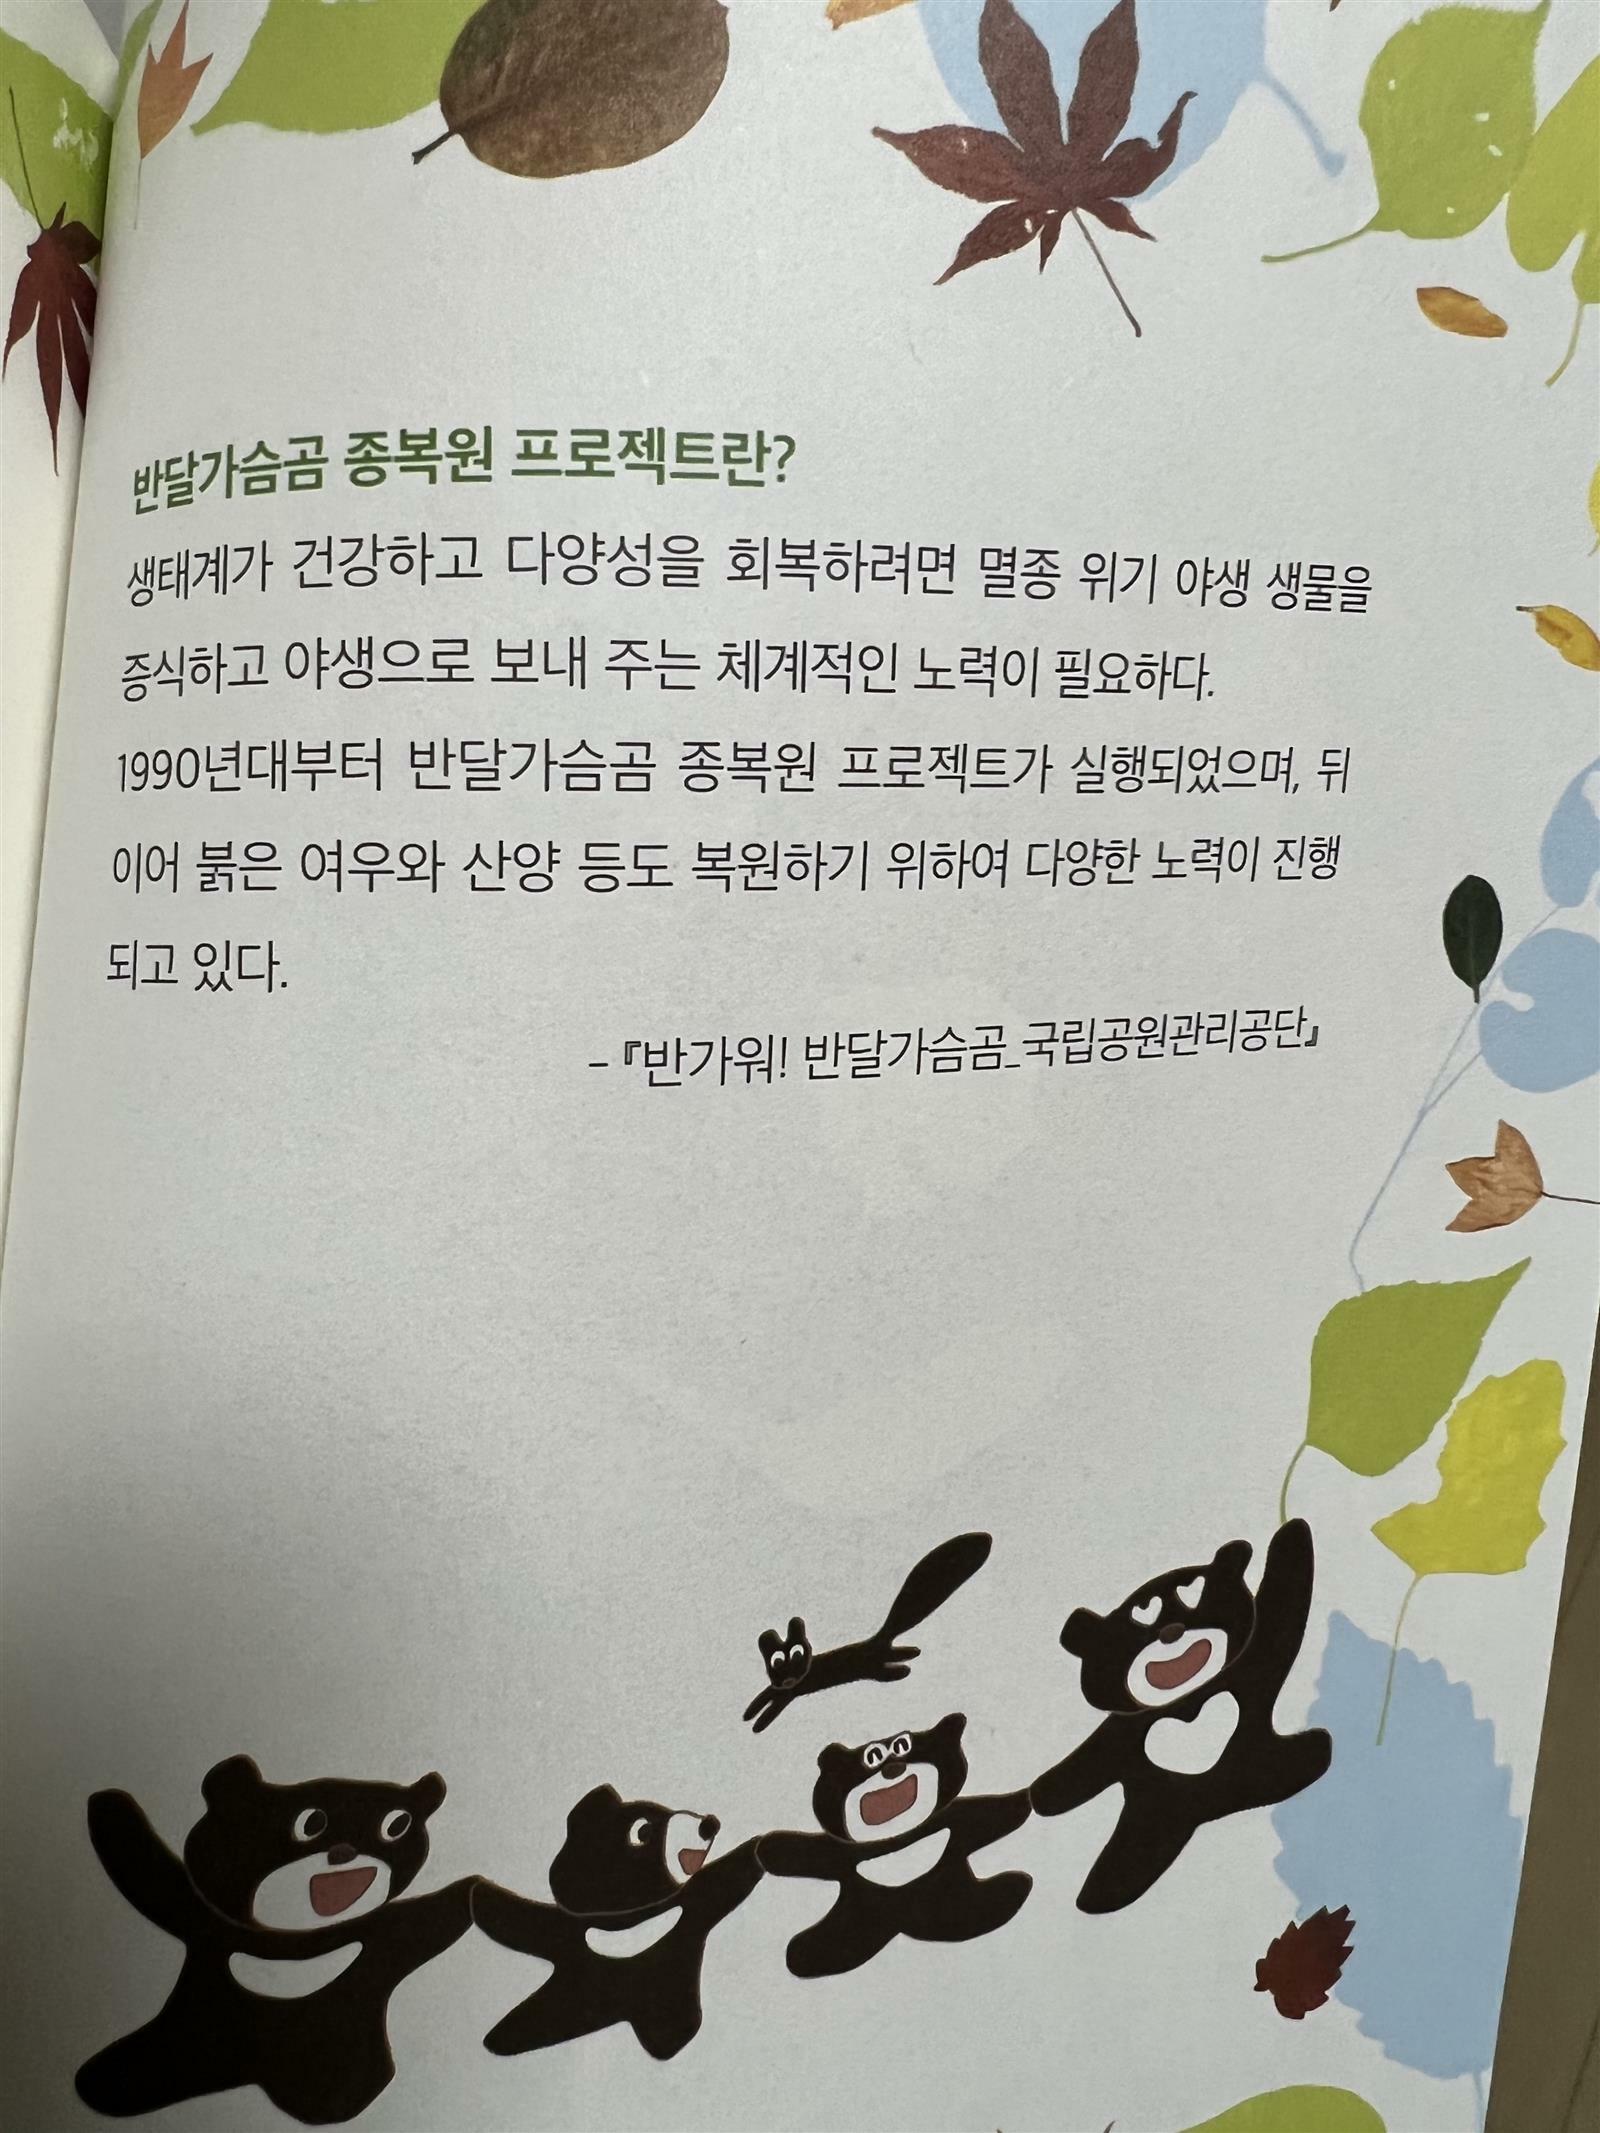 반달가슴곰 종복원 프로젝트란?
생태계가 건강하고 다양성을 회복하려면 멸종 위기 야생 생물을
증식하고 야생으로 보내 주는 체계적인 노력이 필요하다.
1990년대부터 반달가슴곰 종복원 프로젝트가 실행되었으며, 뒤
이어 붉은 여우와 산양 등도 복원하기 위하여 다양한 노력이 진행
되고 있다.
–『반가워! 반달가슴곰_국립공원관리공단』